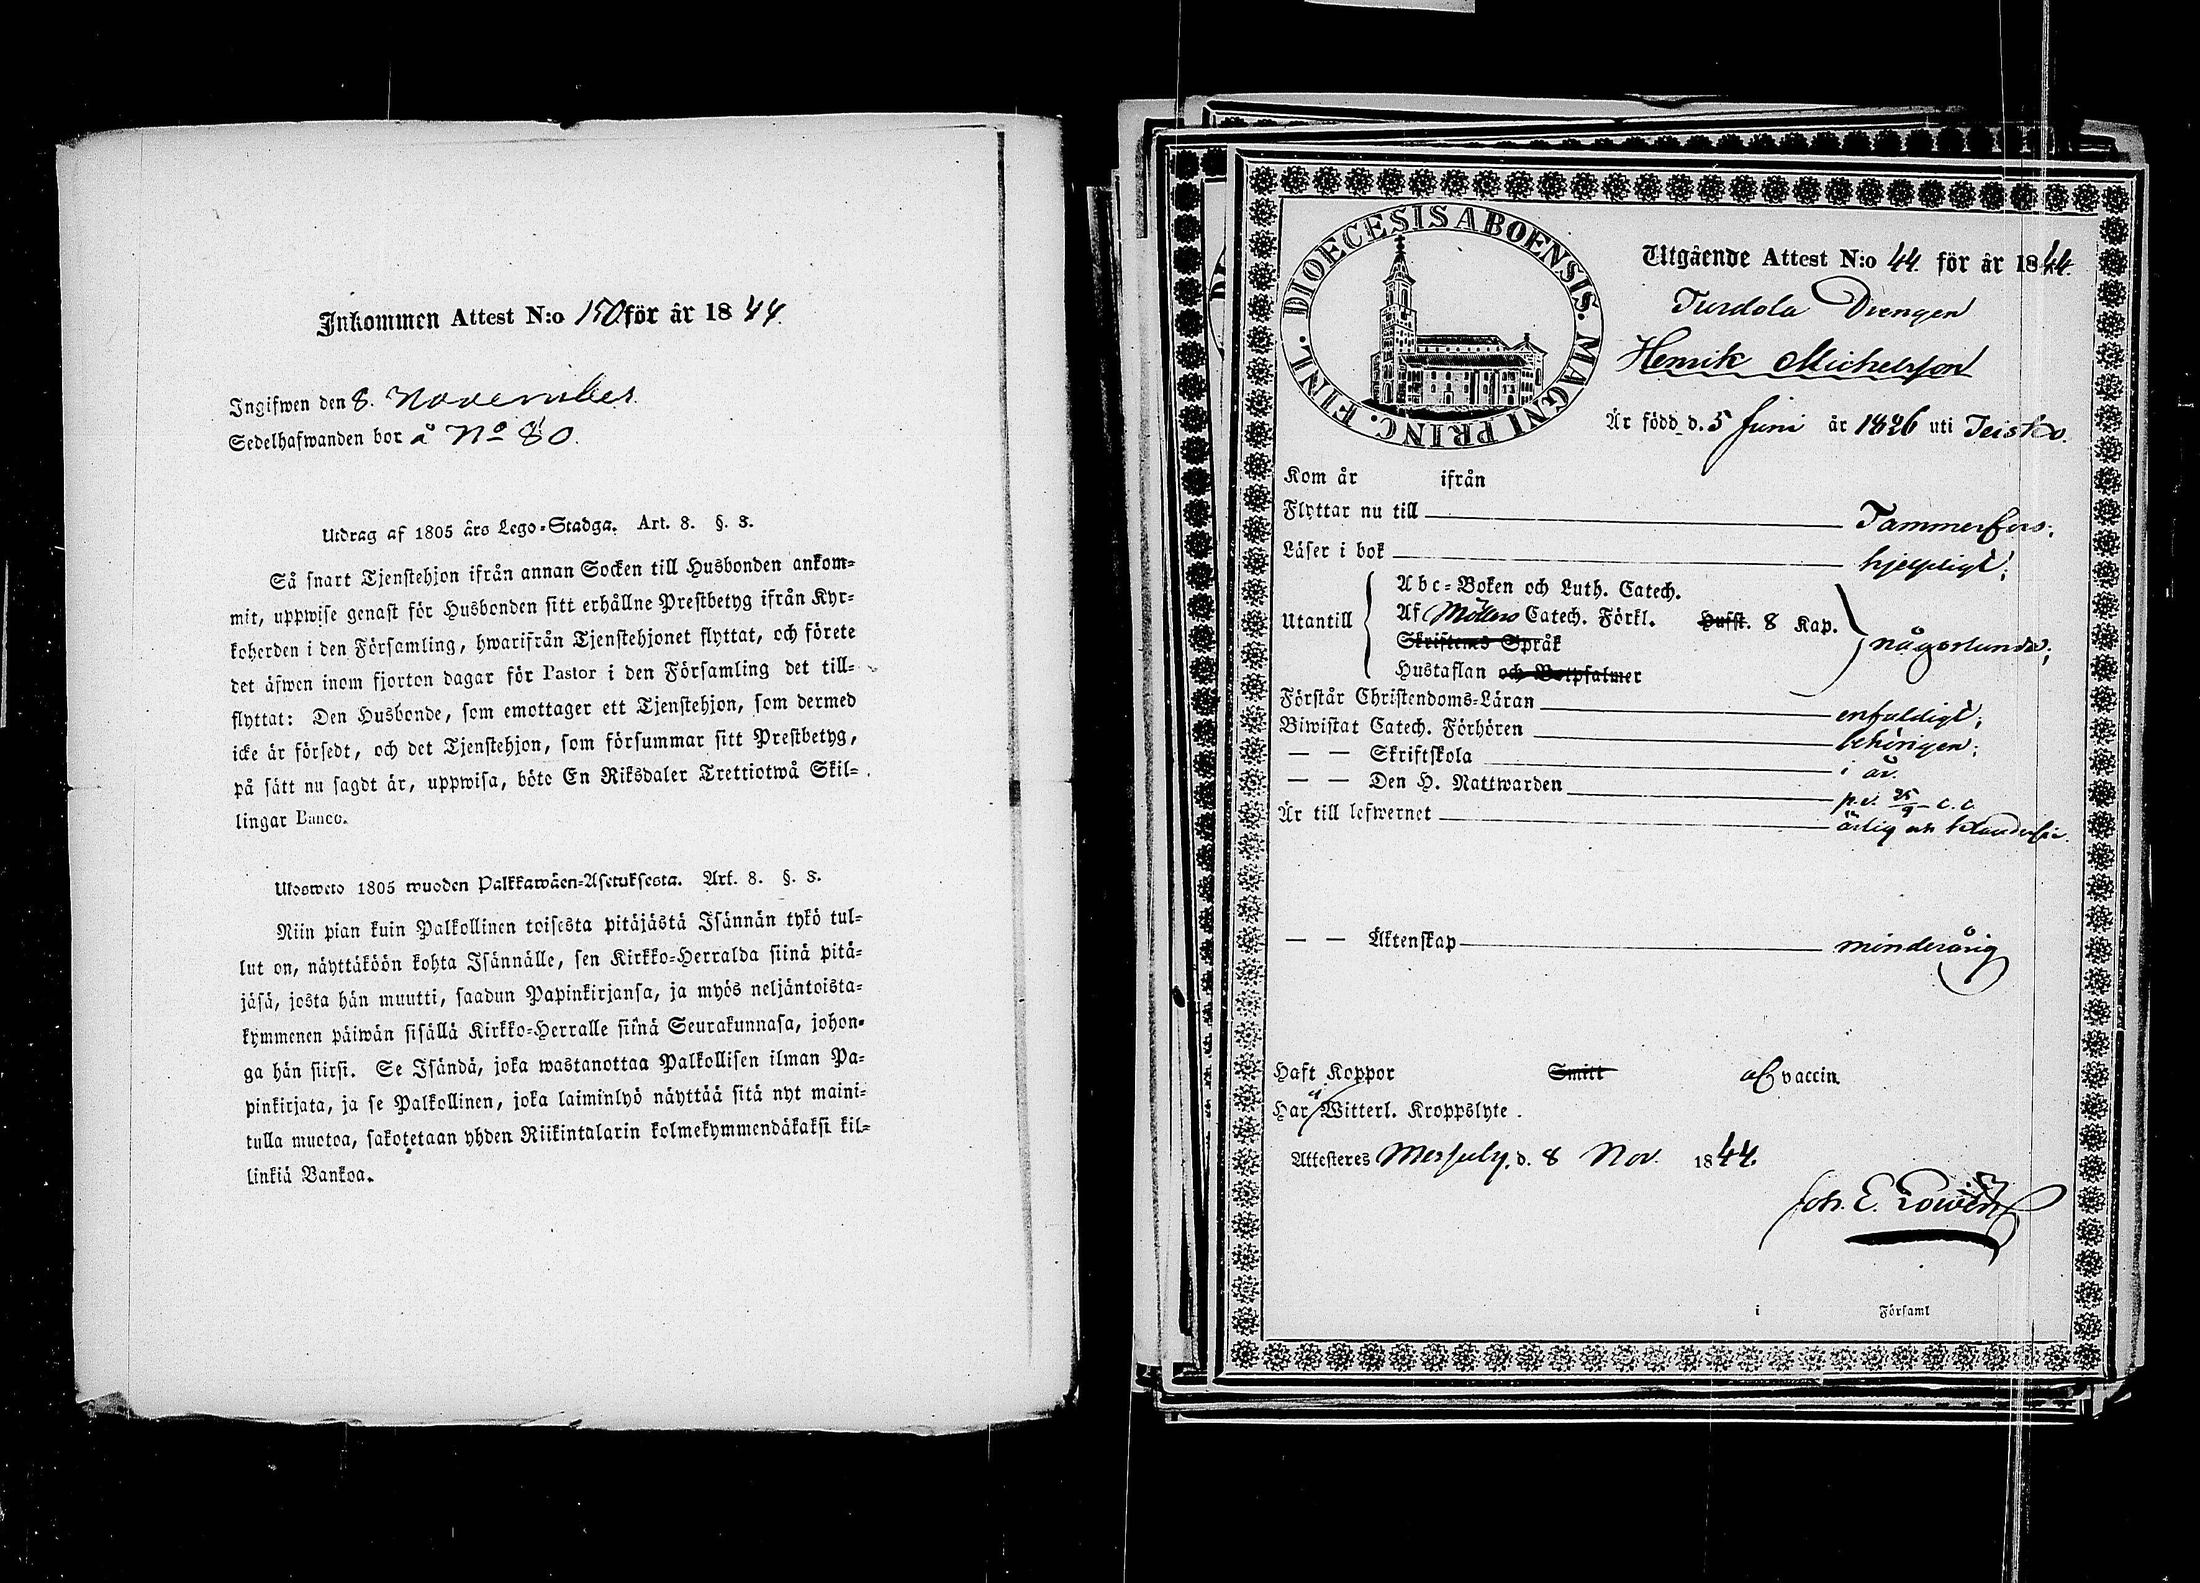 Inkommen Attest N:o 150 för år 1844.
Ingifwen den 8. November
Sedelhafwanden bor å No 80.
Utdrag af 1805 års Lego-Stadga. Art. 8. §. 8.
Så snart Tjenstehjon ifrån annan Socken till Husbonden ankom-
mit, uppwise genast för Husbonden sitt erhållne Prestbetyg ifrån Kyr-
koherden i den Församling, hwarifrån Tjenstehjonet flyttat, och förete
det äfwen inom fjorton dagar för Pastor i den Församling det till-
flyttat: Den Husbonde, som emottager ett Tjenstehjon, som dermed
icke är försedt, och det Tjenstehjon, som försummar sitt Prestbetyg,
på sätt nu sagdt är, uppwisa, böte En Riksdaler Trettiotwå Skil-
lingar Banco.
Ulosweto 1805 wuoden Palkkawäen-Asetuksesta. Art. 8. §. 8.
Niin pian kuin Palkollinen toisesta pitäjästä Isännän tykö tul-
lut on, näyttäköön kohta Isännälle, sen Kirkko-Herralda siinä pitä-
jäsä, josta hän muutti, saadun Papinkirjansa, ja myös neljäntoista-
kymmenen päiwän sisällä Kirkko-Herralle siinä Seurakunnasa, johon-
ga hän siirsi. Se Isändä, joka wastanottaa Palkollisen ilman Pa-
pinkirjata, ja se Palkollinen, joka laiminlyö näyttää sitä nyt maini-
tulla muotoa, sakotetaan yhden Riikintalarin kolmekymmendäkaksi kil-
linkiä Bankoa.
DIOECESIS ABOENSIS. MAGNI PRINC. FINL.
Utgående Attest N:o 44. för år 1844.
Turdola Drengen
Henrik Michelsson
Är född d. 5 Juni år 1826 uti Teisko.
Kom år ifrån
Flyttar nu till Tammerfors.
Läser i bok hjelpligt;
Abc-Boken och Luth. Catech.
Utantill Af Möllers Catech. Förkl. Hufst. 8 Kap. någorlunda;
Skriftenes Språk
Hustaflan och Botpsalmer
Förstår Christendoms-Läran enfaldigt;
Biwistat Catech. Förhören behörigen;
— — Skriftskola i år.
— — Den H. Nattwarden 25/9 c.a
Är till lefwernet ärlig och
— — Äktenskap minderårig
Haft Koppor Smitt af vaccin.
Har ej Witterl. Kroppslyte.
Attesteres Messuby. d. 8 Nov. 1844.
Joh. E.
i Församl